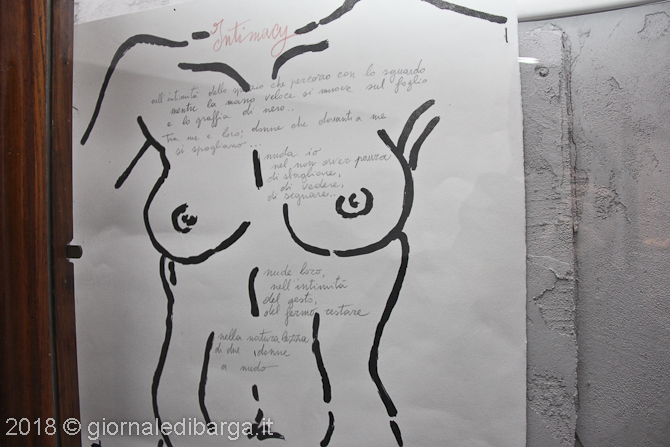 Intimacy
all'intimità dello spazio che percorro con lo sguardo
mentre la mano veloce si muove sul foglio
e lo graffia di nero...
Tra me e loro; donne che davanti a me
si spogliano...
nuda io
nel non aver paura
di sbagliare,
di vedere,
di segnare...
nude loro,
nell'intimità
del gesto,
del fermo restare
nella naturalezza
di due donne
a nudo
2018 © giornaledibarga.it